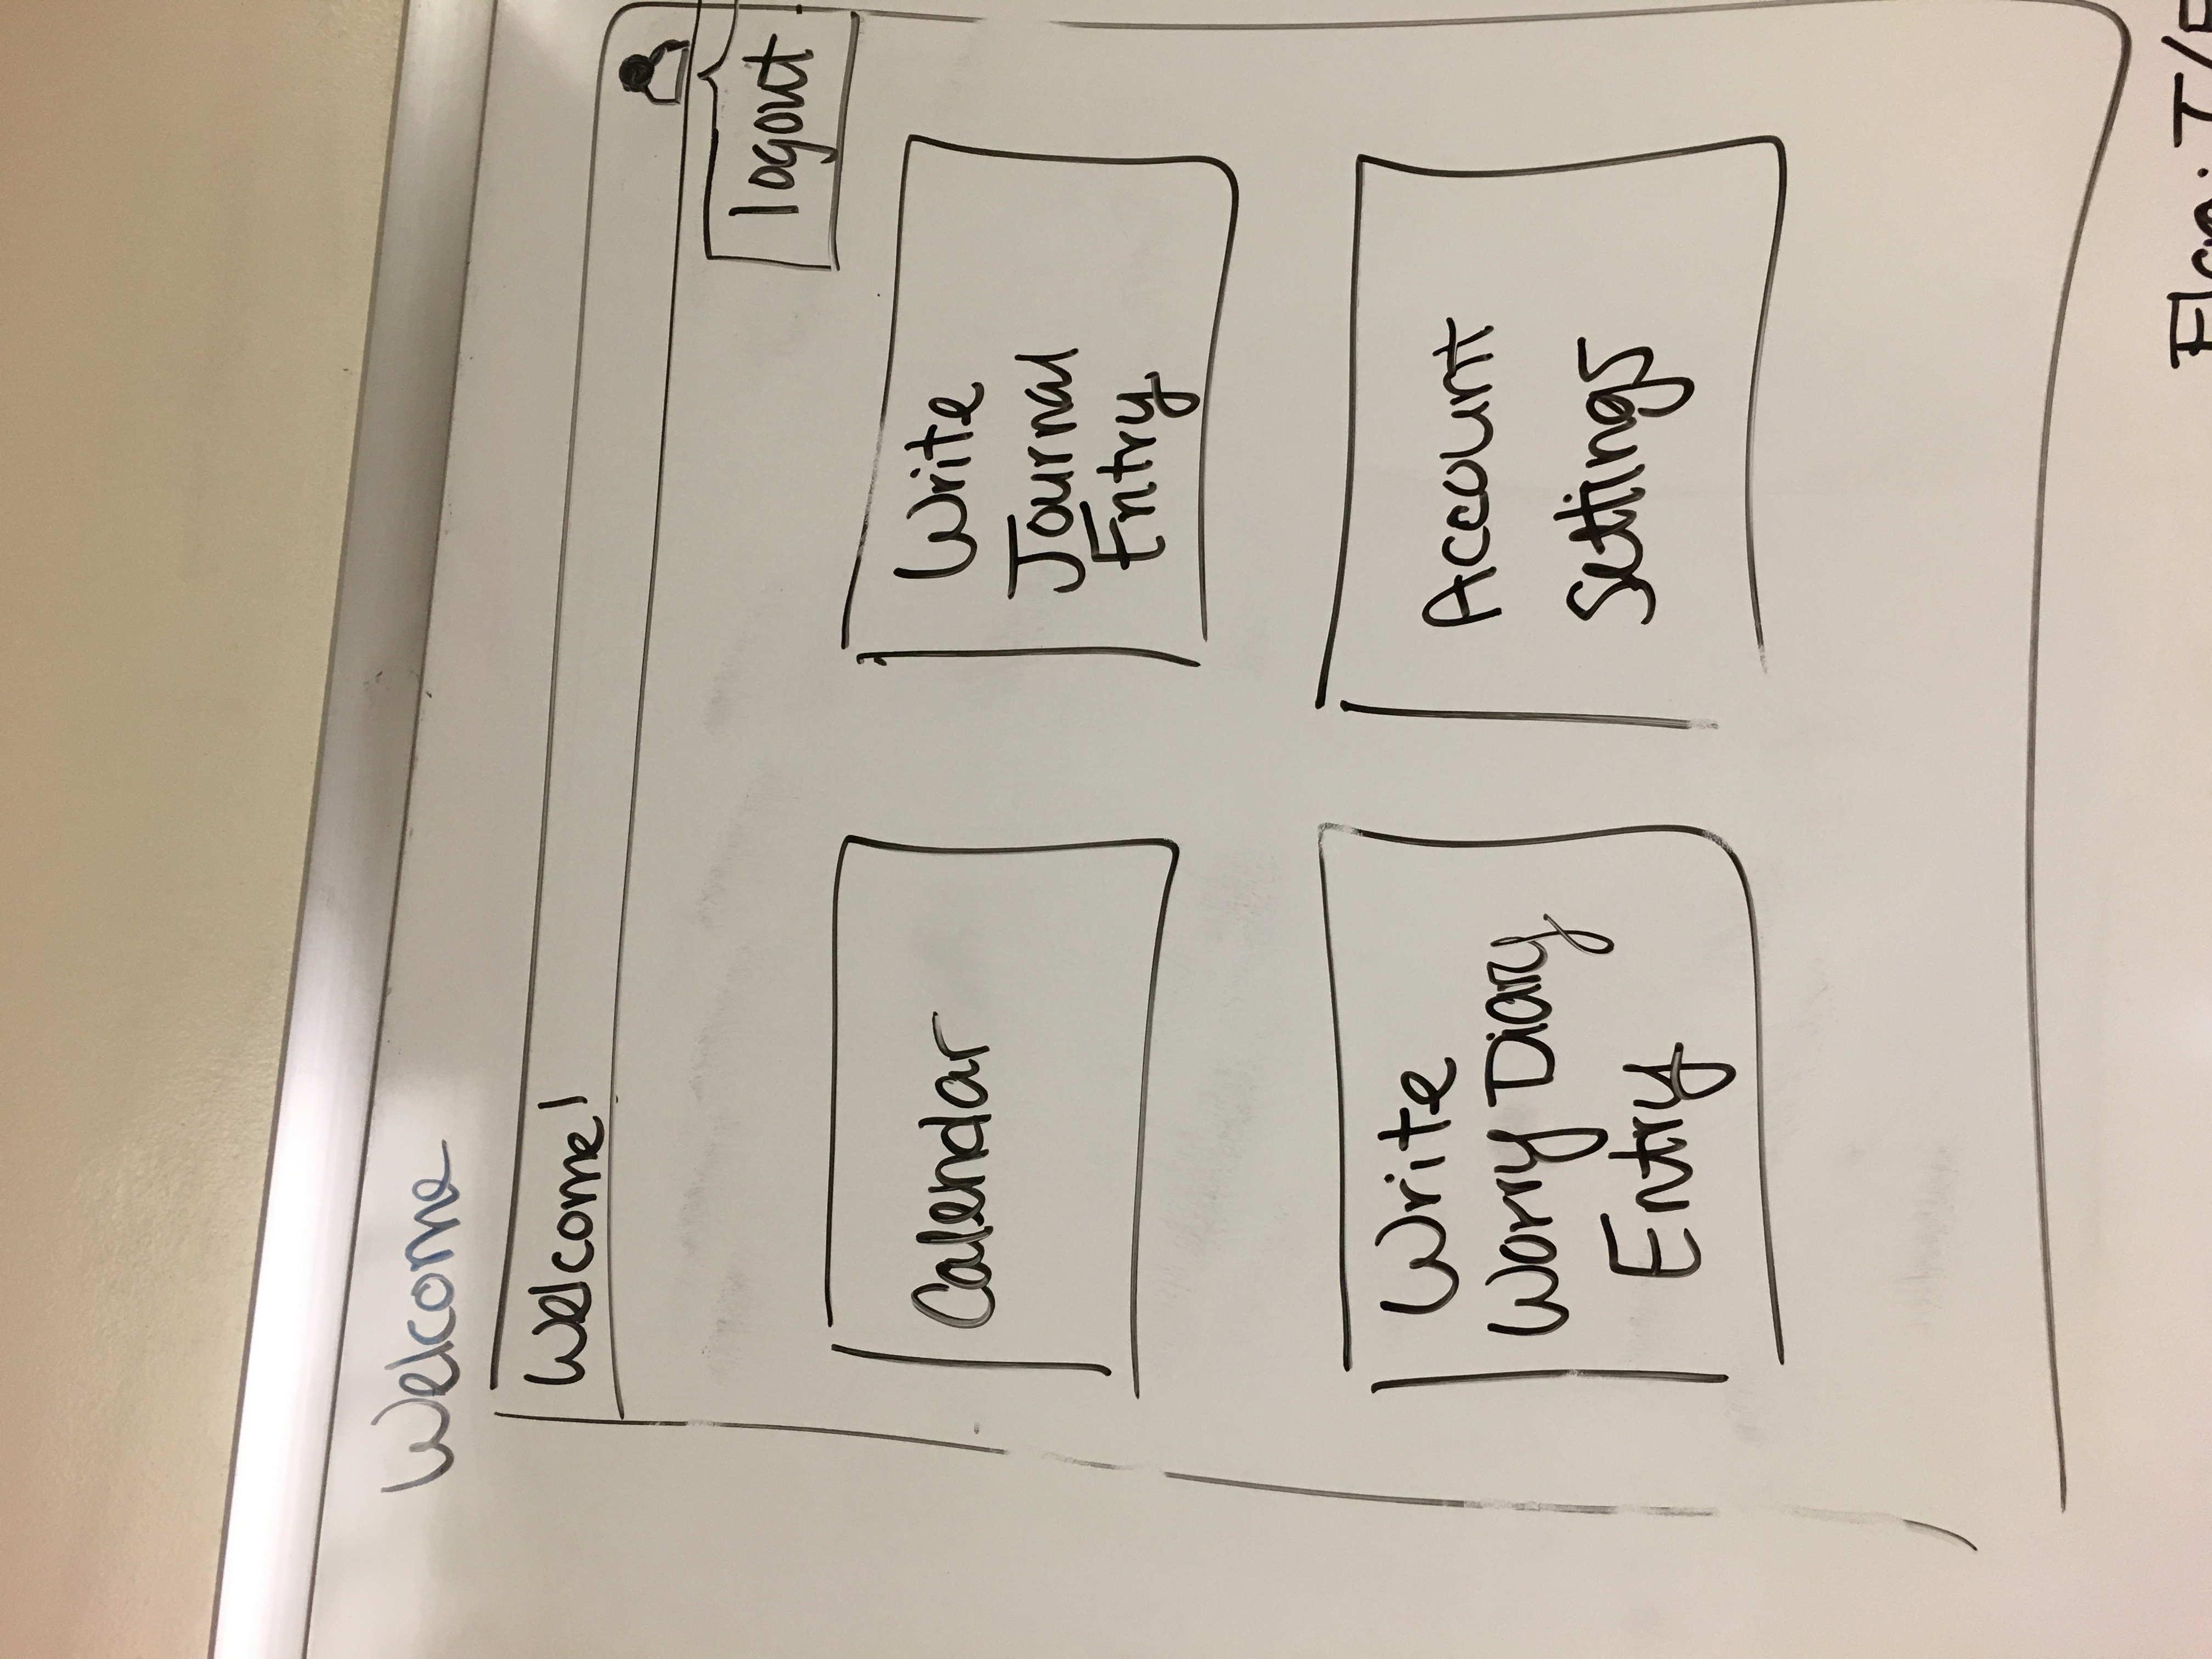 Welcome
Welcome!
logout
Calendar
Write
Journal
Entry
Write
Worry Diary
Entry
Account
Settings